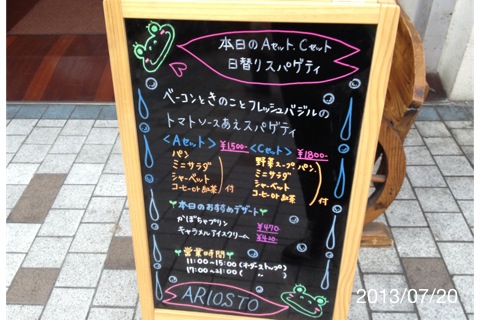 本日のAセット、Cセット
日替りスパゲティ
ベーコンときのことフレッシュバジルの
トマトソースあえスパゲティ
<Aセット> ¥1500- <Cセット> ¥1800-
パン
ミニサラダ
シャーベット
コーヒーor紅茶 付
野菜スープ パン
ミニサラダ
シャーベット
コーヒーor紅茶 付
本日のおすすめデザート
かぼちゃプリン ¥470
キャラメルアイスクリーム ¥420-
営業時間
11:00~15:00 (オーダーストップ)
17:00~21:00 ( 〃 )
ARIOSTO
2013/07/20